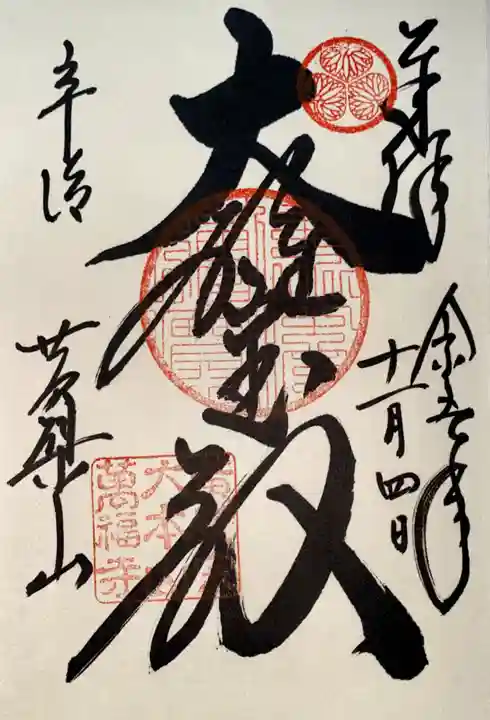 奉拝
令和五年
十一月四日
大雄宝殿
宇治
黄檗山
大本山
萬福寺